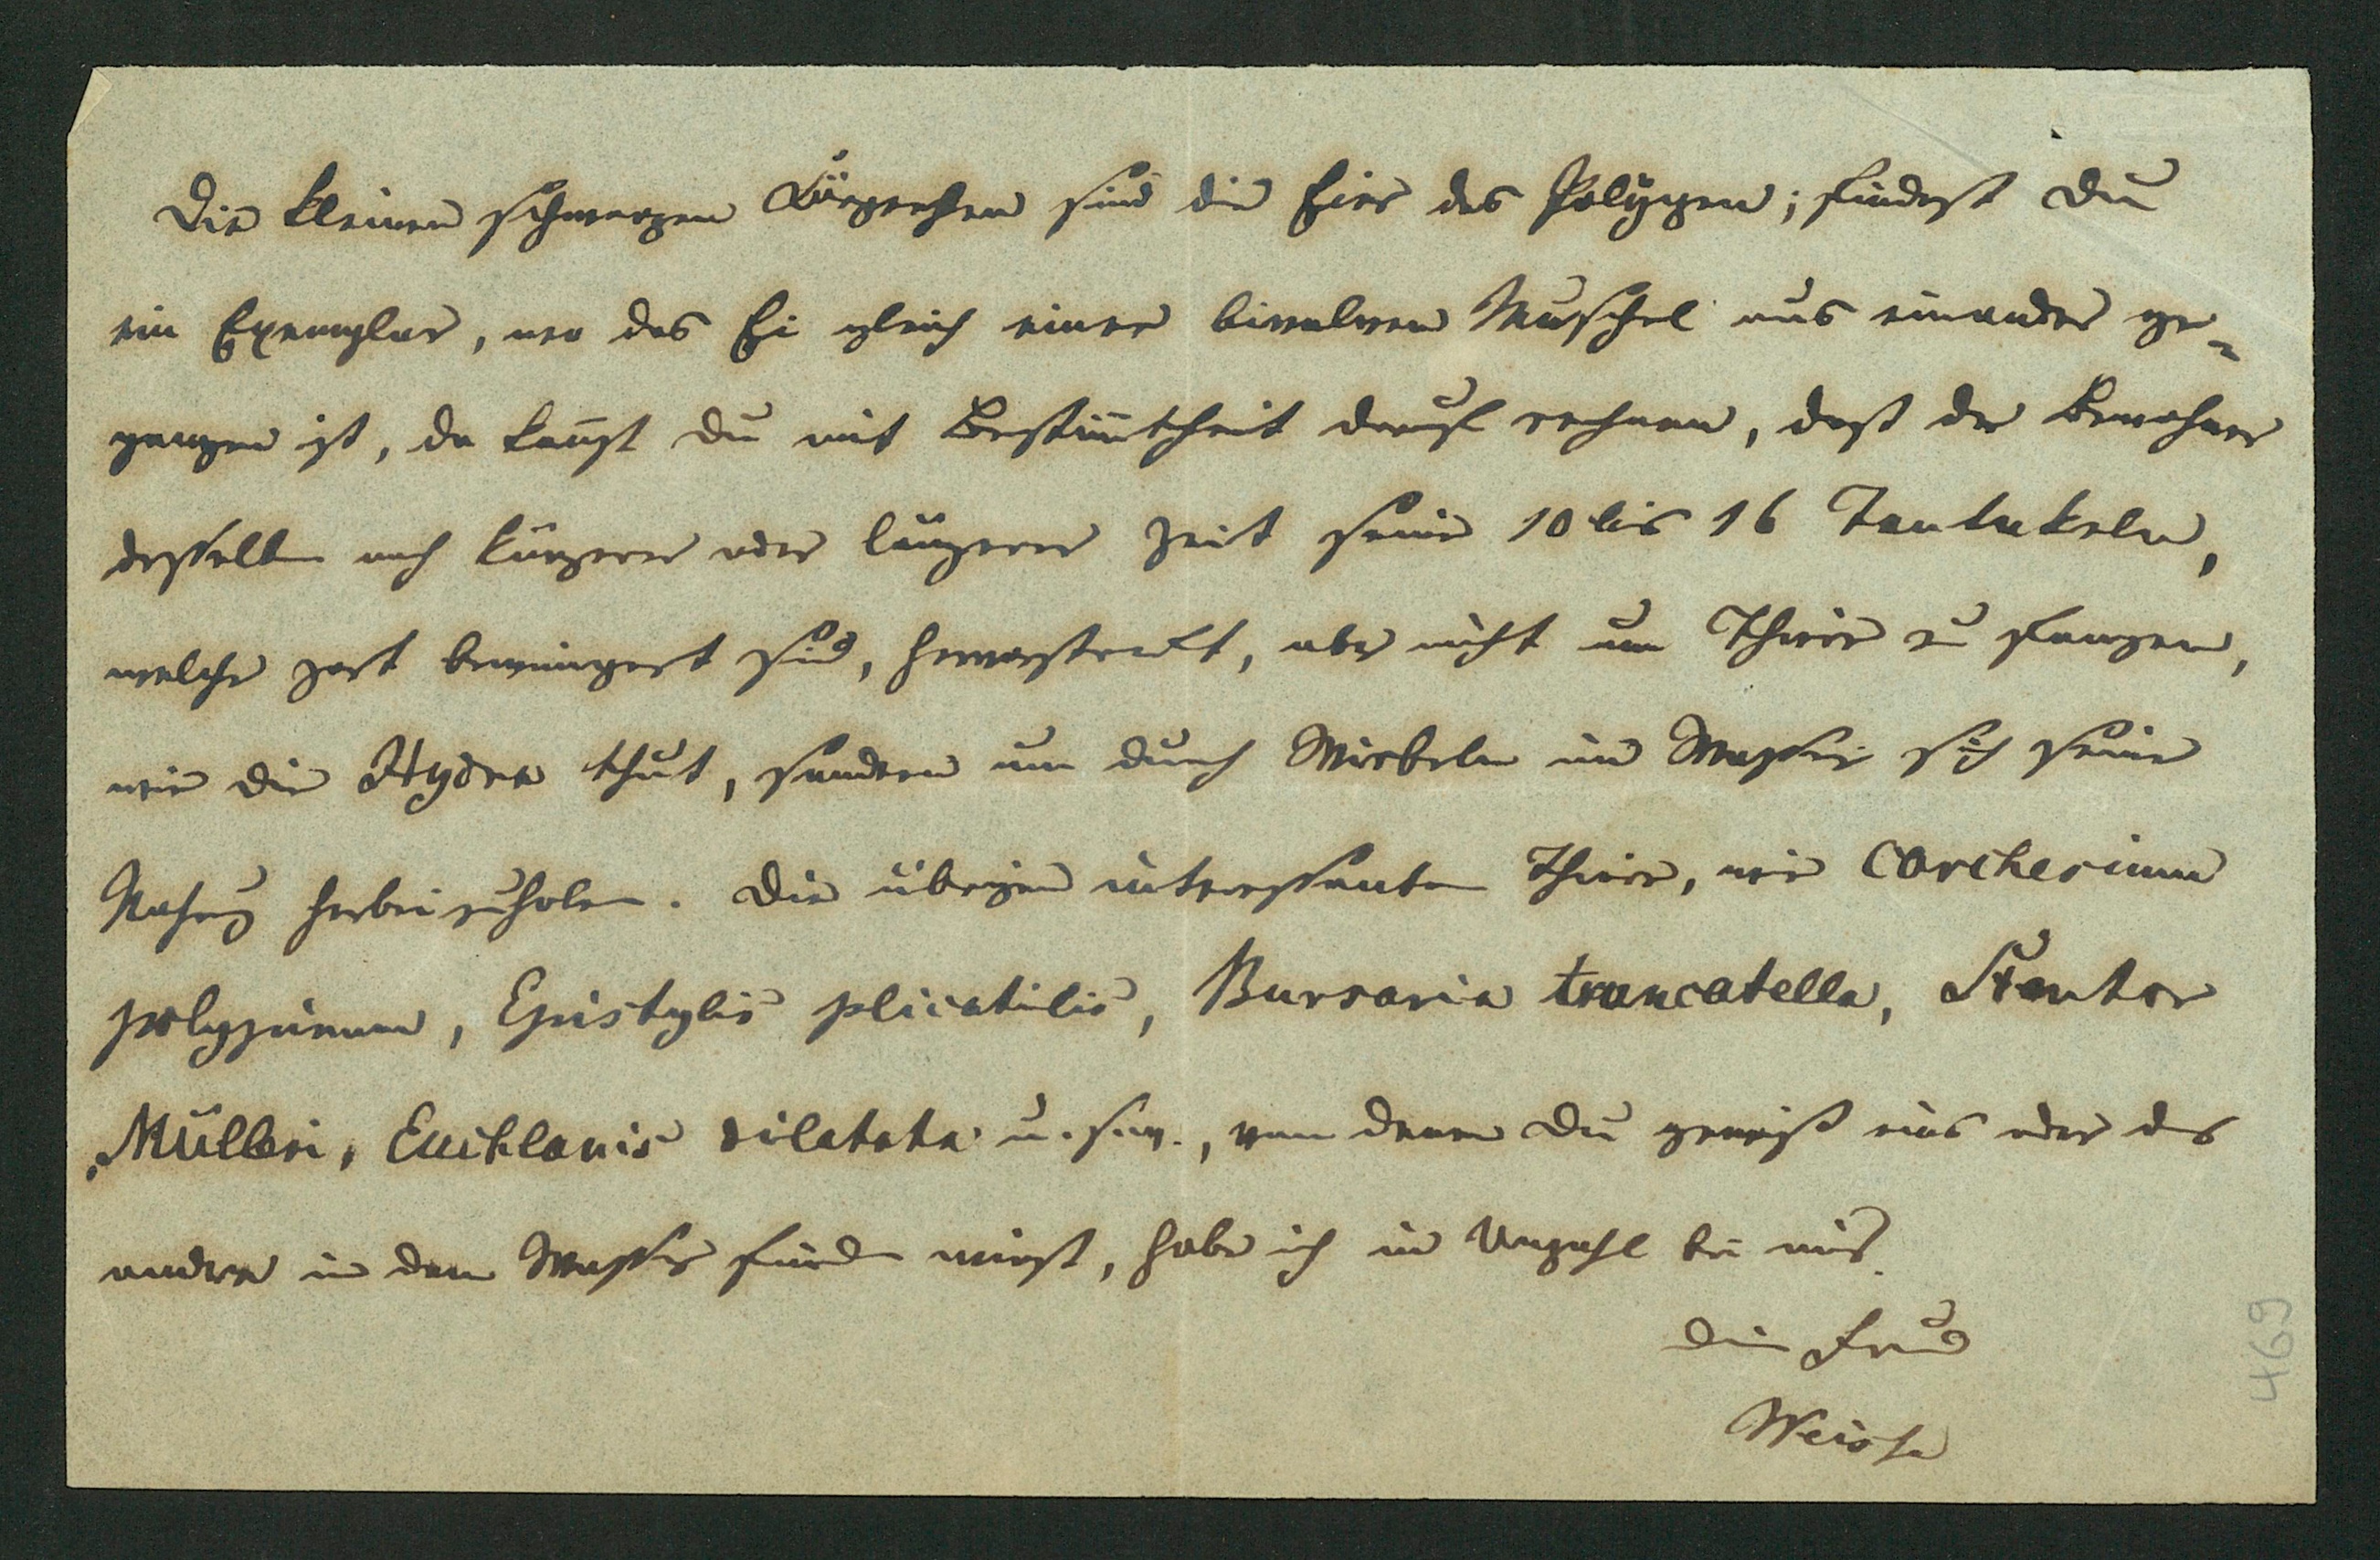 Die kleinen schwarzen Körperchen sind die Eier des Polypen; findest Du
ein Exemplar, wo das Ei gleich einer bivalven Muschel aus einander ge-
gangen ist, da kan̄st Du mit Bestim̄theit darauf rechnen, daß der Bewohner
desselben nach kürzerer oder längerer Zeit seine 10 bis 16 Tentakeln,
welche zart bewimpert sind, hervorstreckt, aber nicht um Thiere zu fangen,
wie die Hydra thut, sondern um durch Wirbeln im Wasser sich seine
Nahrung herbei zu holen. Die übrigen interessanten Thiere, wie Carchesium
polypinum, Epistylis plicatilis, Bursaria truncatella, Stentor
Mülleri, Euchlanis dilatata u. s. w., von denen Du gewiß eins oder das
andere in dem Wasser finden wirst, habe ich in Unzahl bei mir.
Dein Freund
Weisse
469